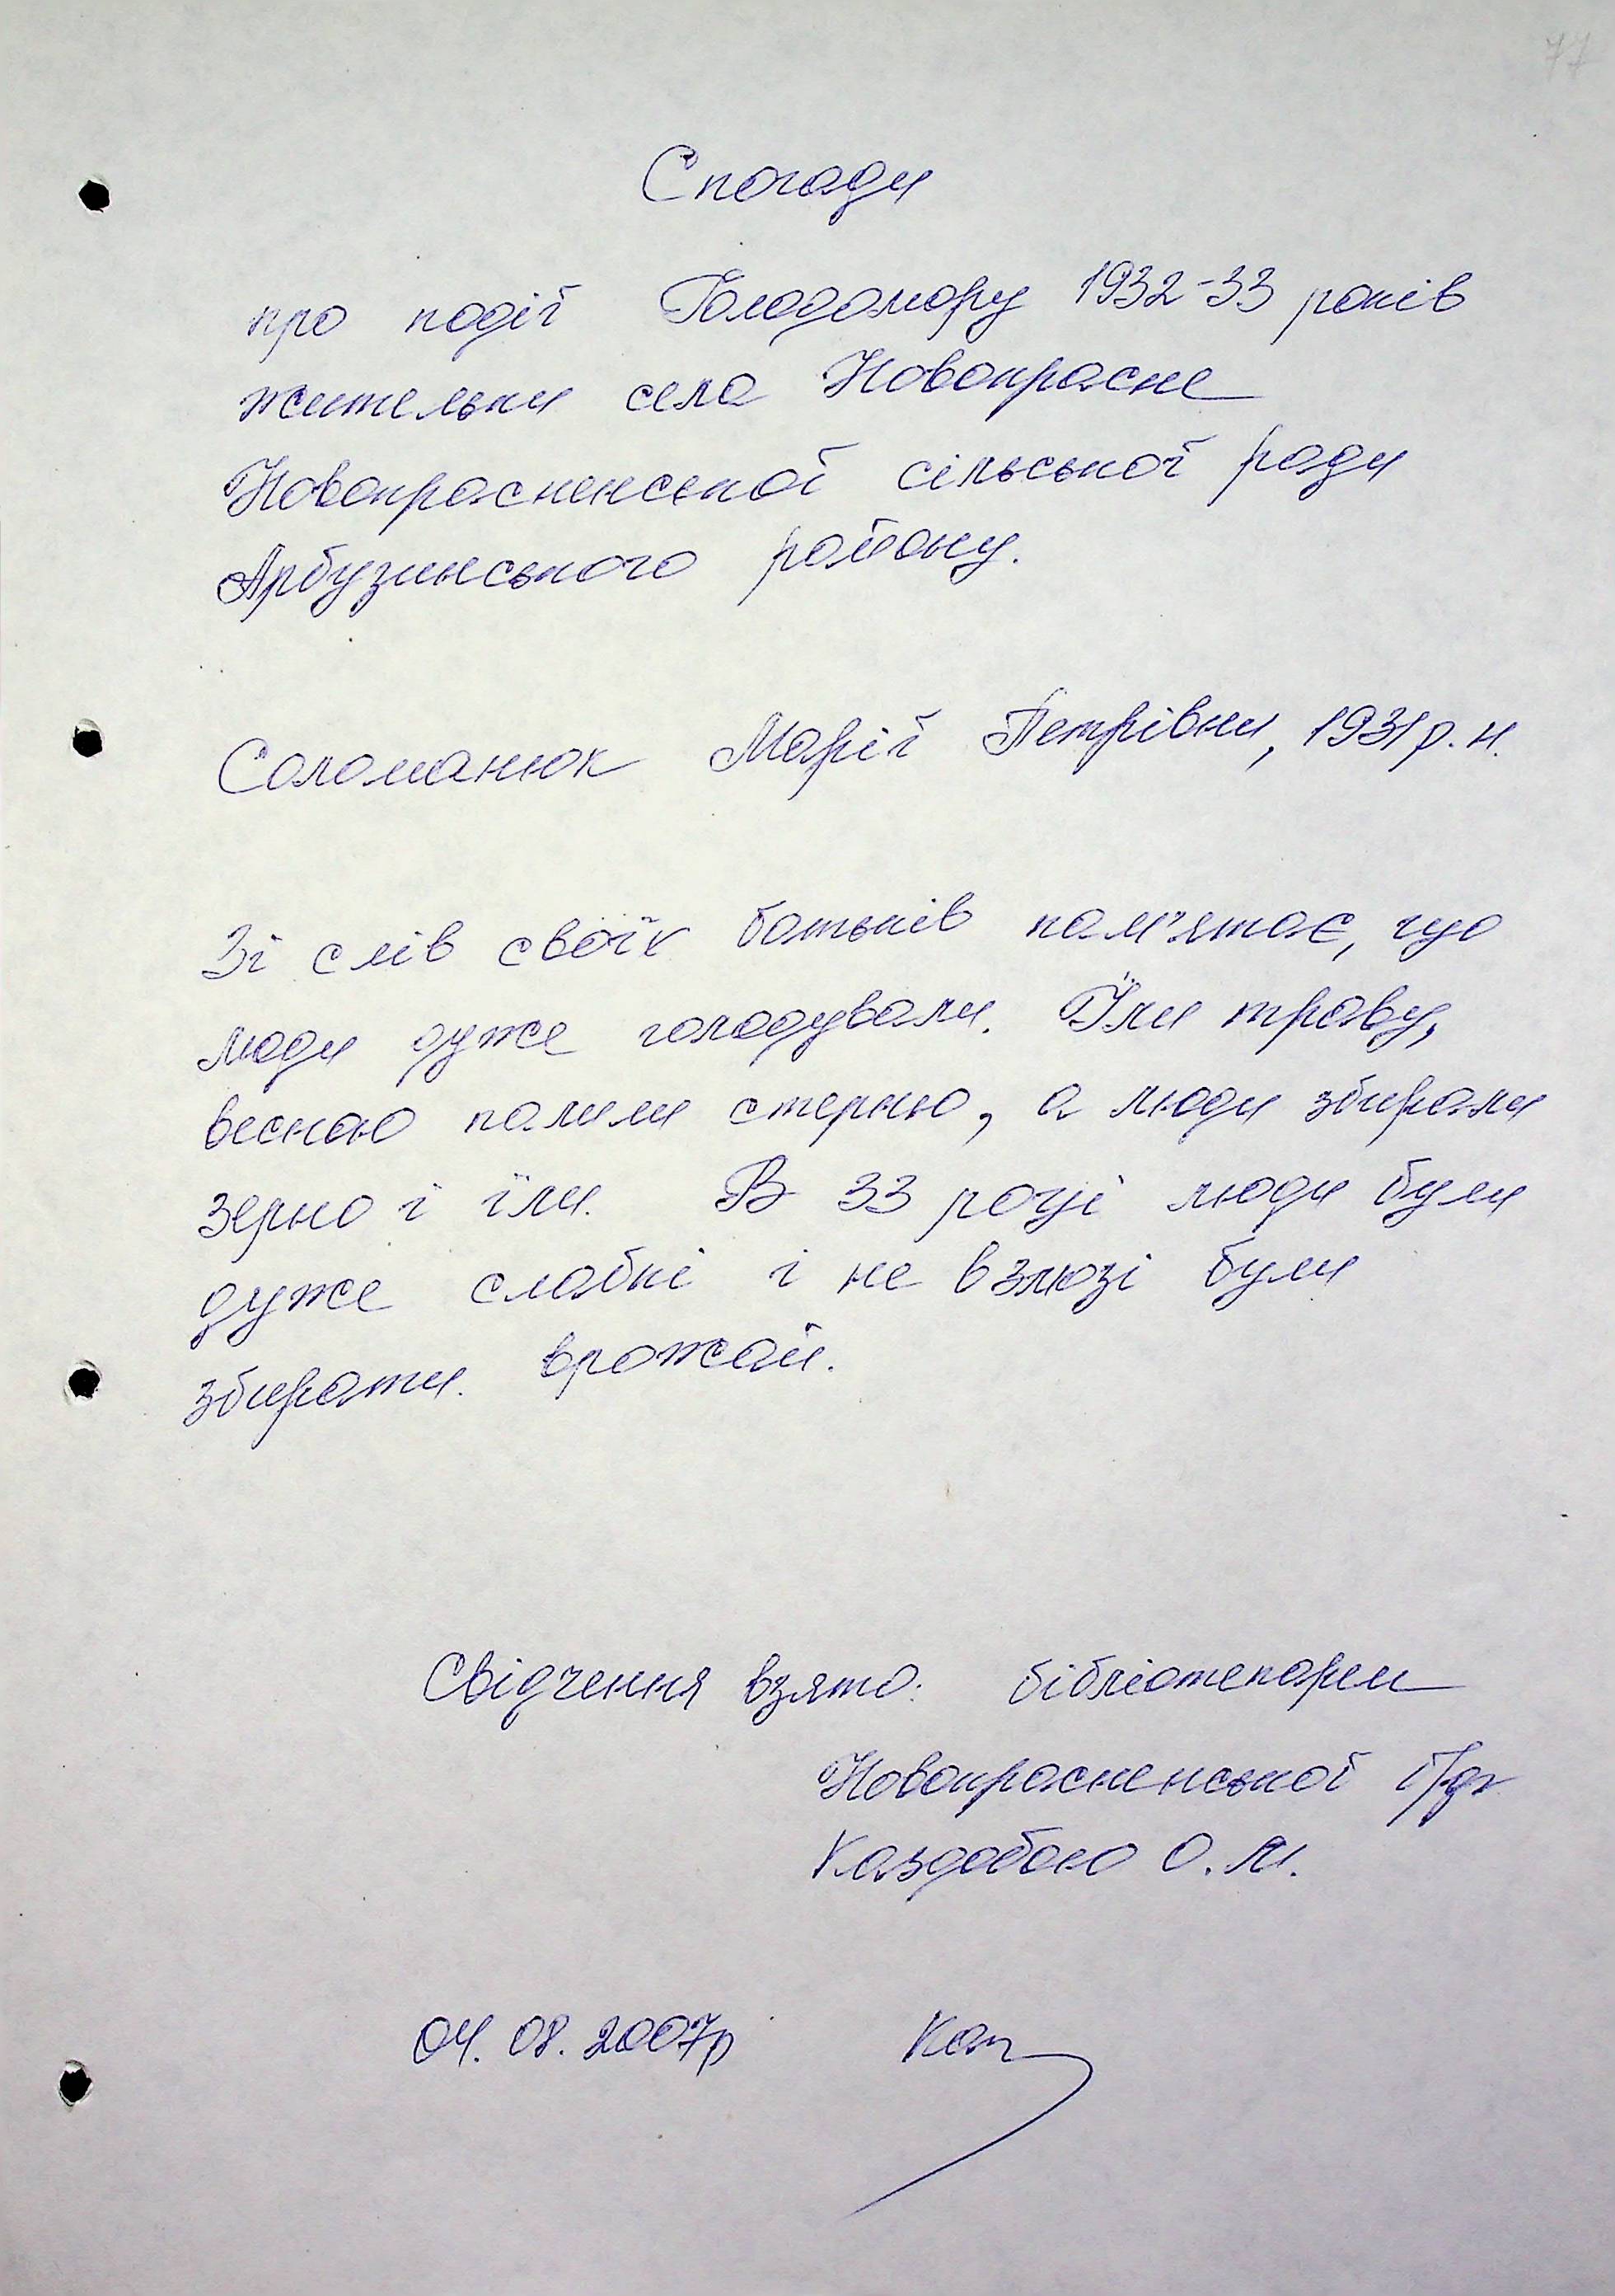 77
Спогади
про події Голодомору 1932-33 років
жительки села Новокрасне
Новокрасненської сільської ради
Арбузинського району.
Соломанюк Марії Петрівни, 1931 р. н.
Зі слів своїх батьків пам'ятає, що
люди дуже голодували. Їли траву,
весною палили стерню, а люди збирали
зерно і їли. В 33 році люди були
дуже слабкі і не взмозі були
збирати врожай.
Свідчення взято: бібліотекарем
Новокрасненської
Каздобою О. М.
04. 08. 2007р